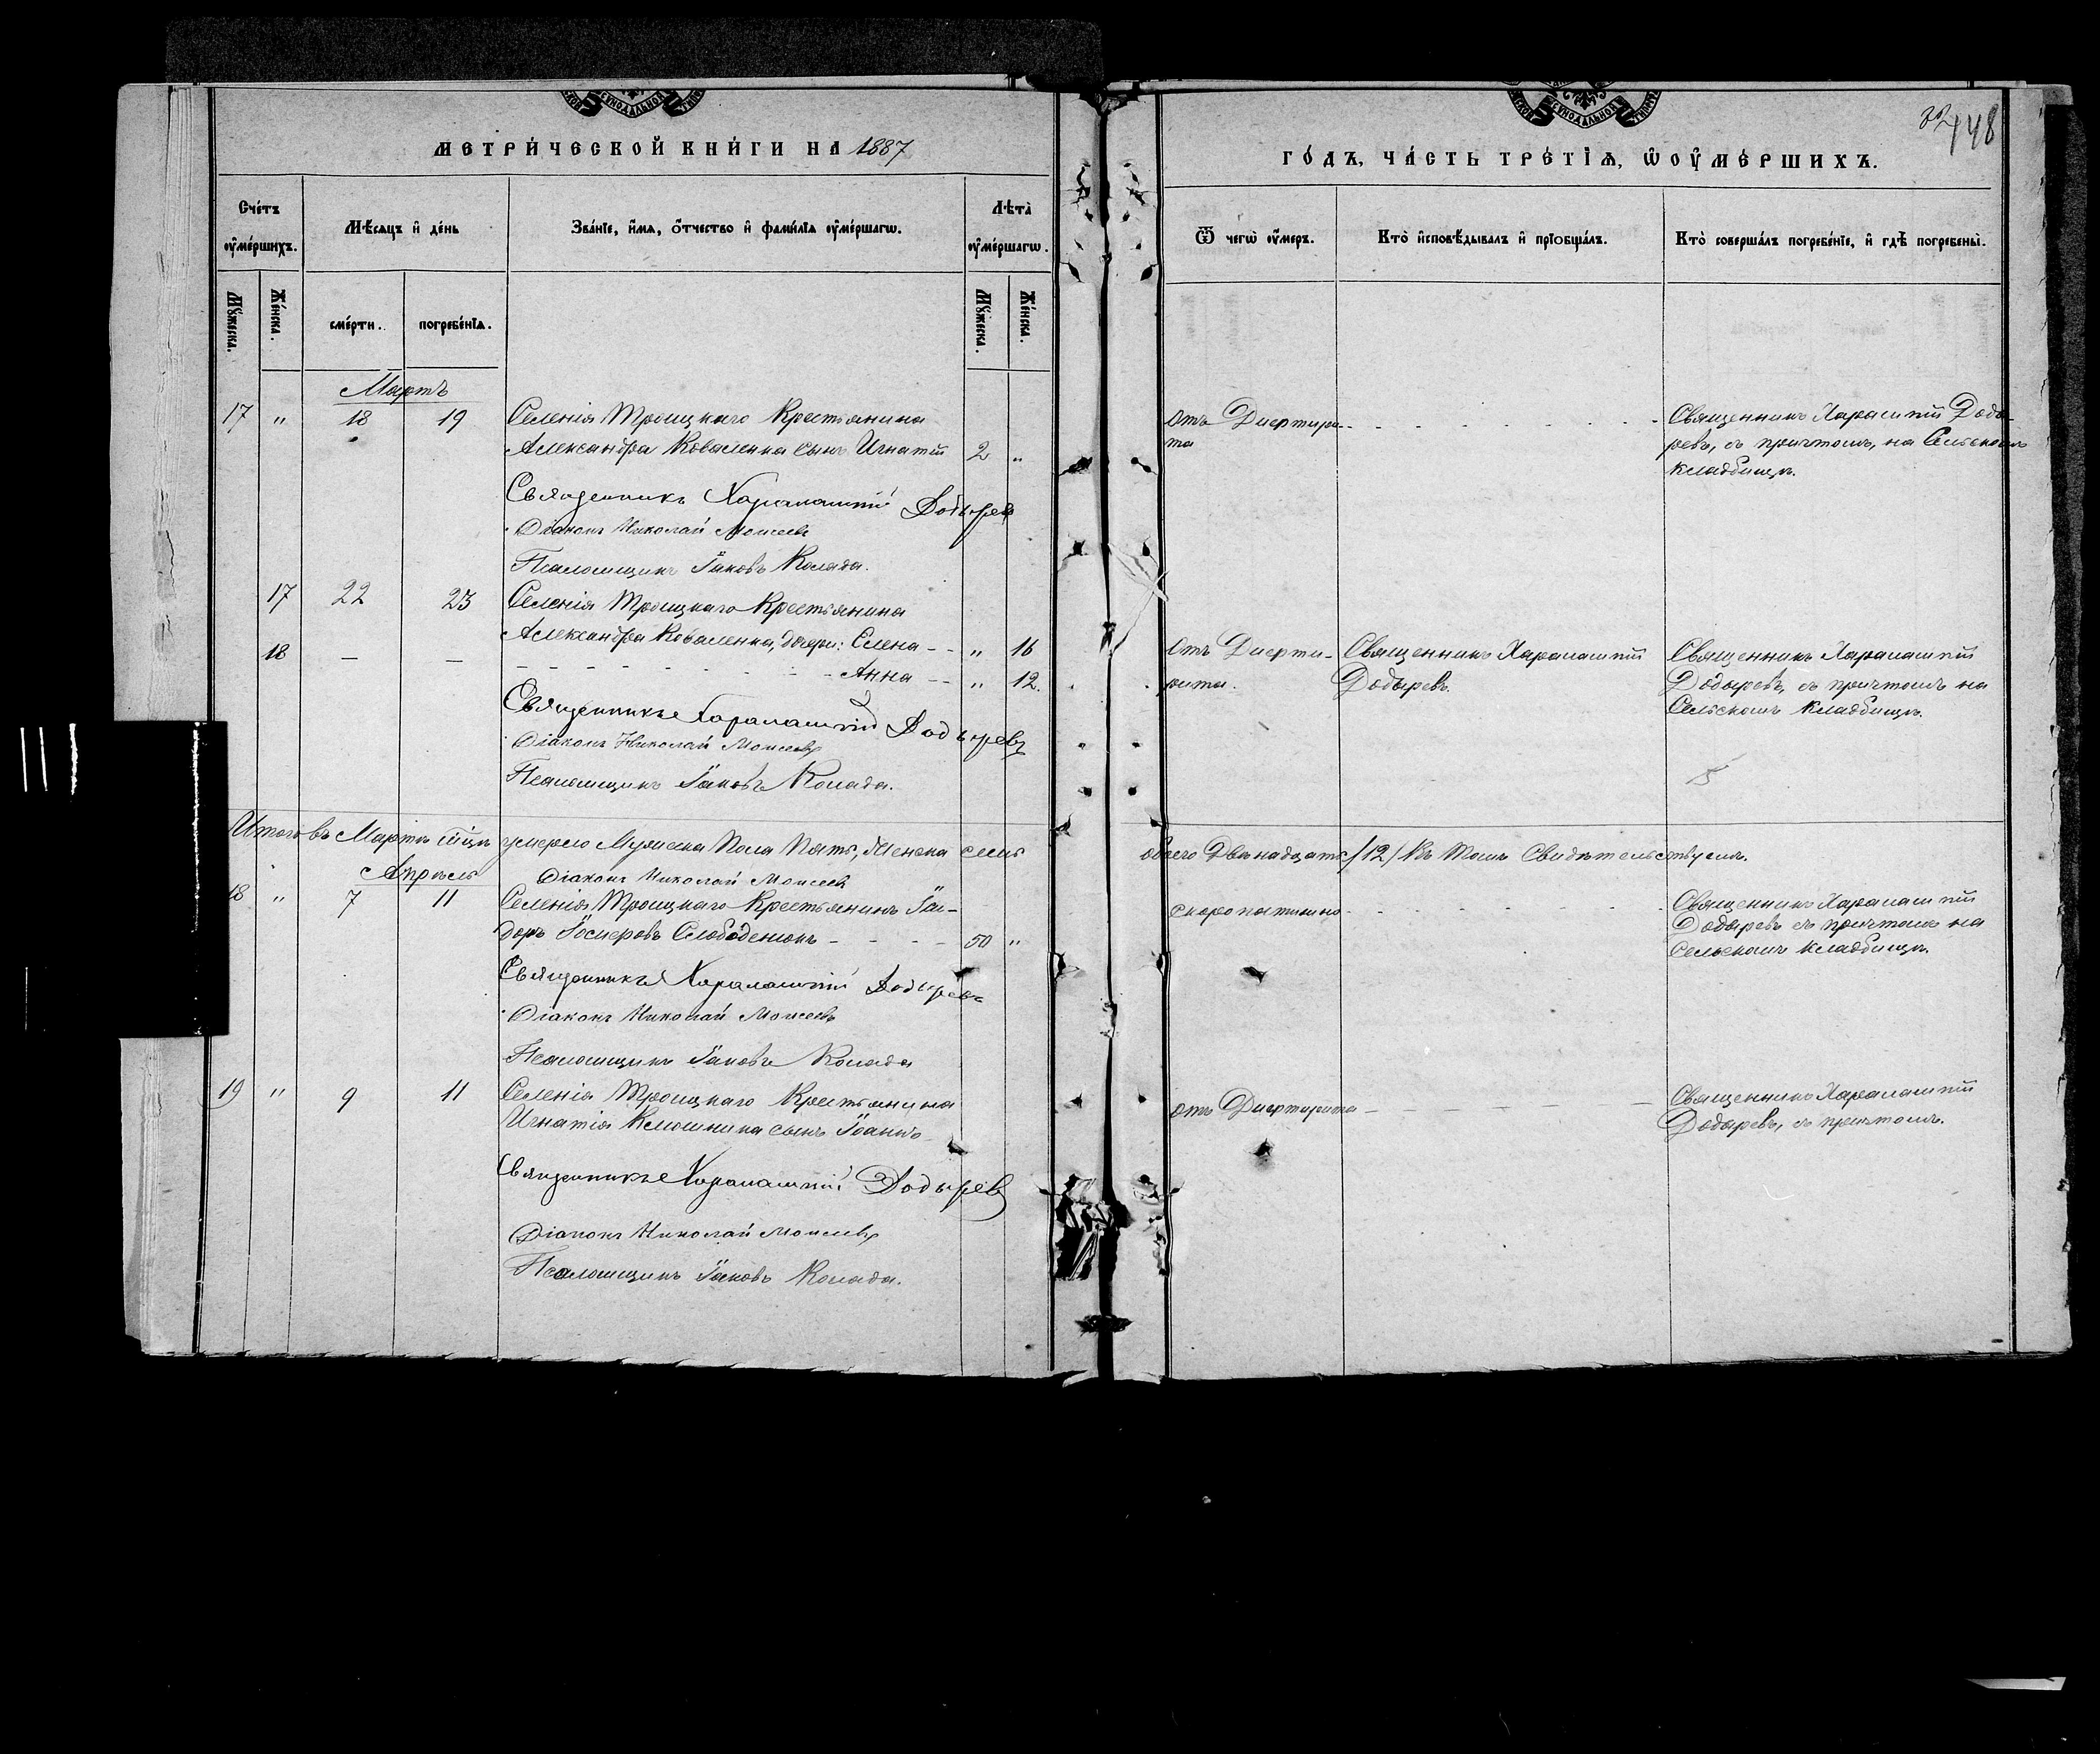 МЕТРИ́ЧЕСКОЙ КНИ́ГИ НА 1887
ГО́ДЪ, ЧА́СТЬ ТРЕ́ТІѦ, Ѡ ОУ҆МЕ́РШИХЪ.
448
Сче́тъ оу҆ме́ршихъ.
Мѣ́сяцъ и҆ де́нь
Зва́нїе, и҆́мя, о҆́тчество и҆ фами́лїя оу҆ме́ршагѡ.
Лѣ́та оу҆ме́ршагѡ.
Ѿ чегѡ̀ оу҆́меръ.
Кто̀ и҆сповѣ́дывалъ и҆ прїѡбща́лъ.
Кто̀ соверша́лъ погребе́нїе, и҆ гдѣ̀ погребены̀.
Мꙋ́жеска.
Же́нска.
сме́рти.
погребе́нїя.
Мꙋ́жеска.
Же́нска.
Мартъ
17 " 18 19 Селенія Троицкаго Крестьянина
Александра Коваленка сынъ Игнатій 2 "
отъ Диертири-
та
Священникъ Харалампій Доды-
ревъ, съ причтомъ, на Сельскомъ
кладбищѣ.
Священникъ Харалампій Додыревъ
Діаконъ Николай Моисеевъ
Псаломщикъ Іаковъ Колада.
17 22 23 Селенія Троицкаго Крестьянина
Александра Коваленка, дочери: Елена - - " 16
18 — — - - - Анна - - " 12.
Отъ Диерти-
рита.
Священникъ Харалампій
Додыревъ.
Священникъ Харалампій
Додыревъ, съ причтомъ на
Сельскомъ кладбищѣ.
Священникъ Харалампій Додыревъ
Діаконъ Николай Моисеевъ
Псаломщикъ Іаковъ Колада.
Итого въ Мартѣ мцѣ умерло Мужеска Пола Пять, Женска семь
обоего Двѣнадцать /12/ Въ томъ Свидѣтельствуемъ.
Апрѣль
Діаконъ Николай Моисеевъ
18 " 7 11 Селенія Троицкаго Крестьянинъ Іси-
доръ Іосифовъ Слободенюкъ - - - - 50 "
скоропостижно
Священникъ Харалампій
Додыревъ съ причтомъ на
Сельскомъ кладбищѣ.
Священникъ Харалампій Додыревъ
Діаконъ Николай Моисеевъ
Псаломщикъ Іаковъ Колада
19 " 9 11 Селенія Троицкаго Крестьянина
Игнатія Ключника сынъ Іоаннъ
отъ Диертирита
Священникъ Харалампій
Додыревъ, съ причтомъ.
Священникъ Харалампій Додыревъ
Діаконъ Николай Моисеевъ
Псаломщикъ Іаковъ Колада.